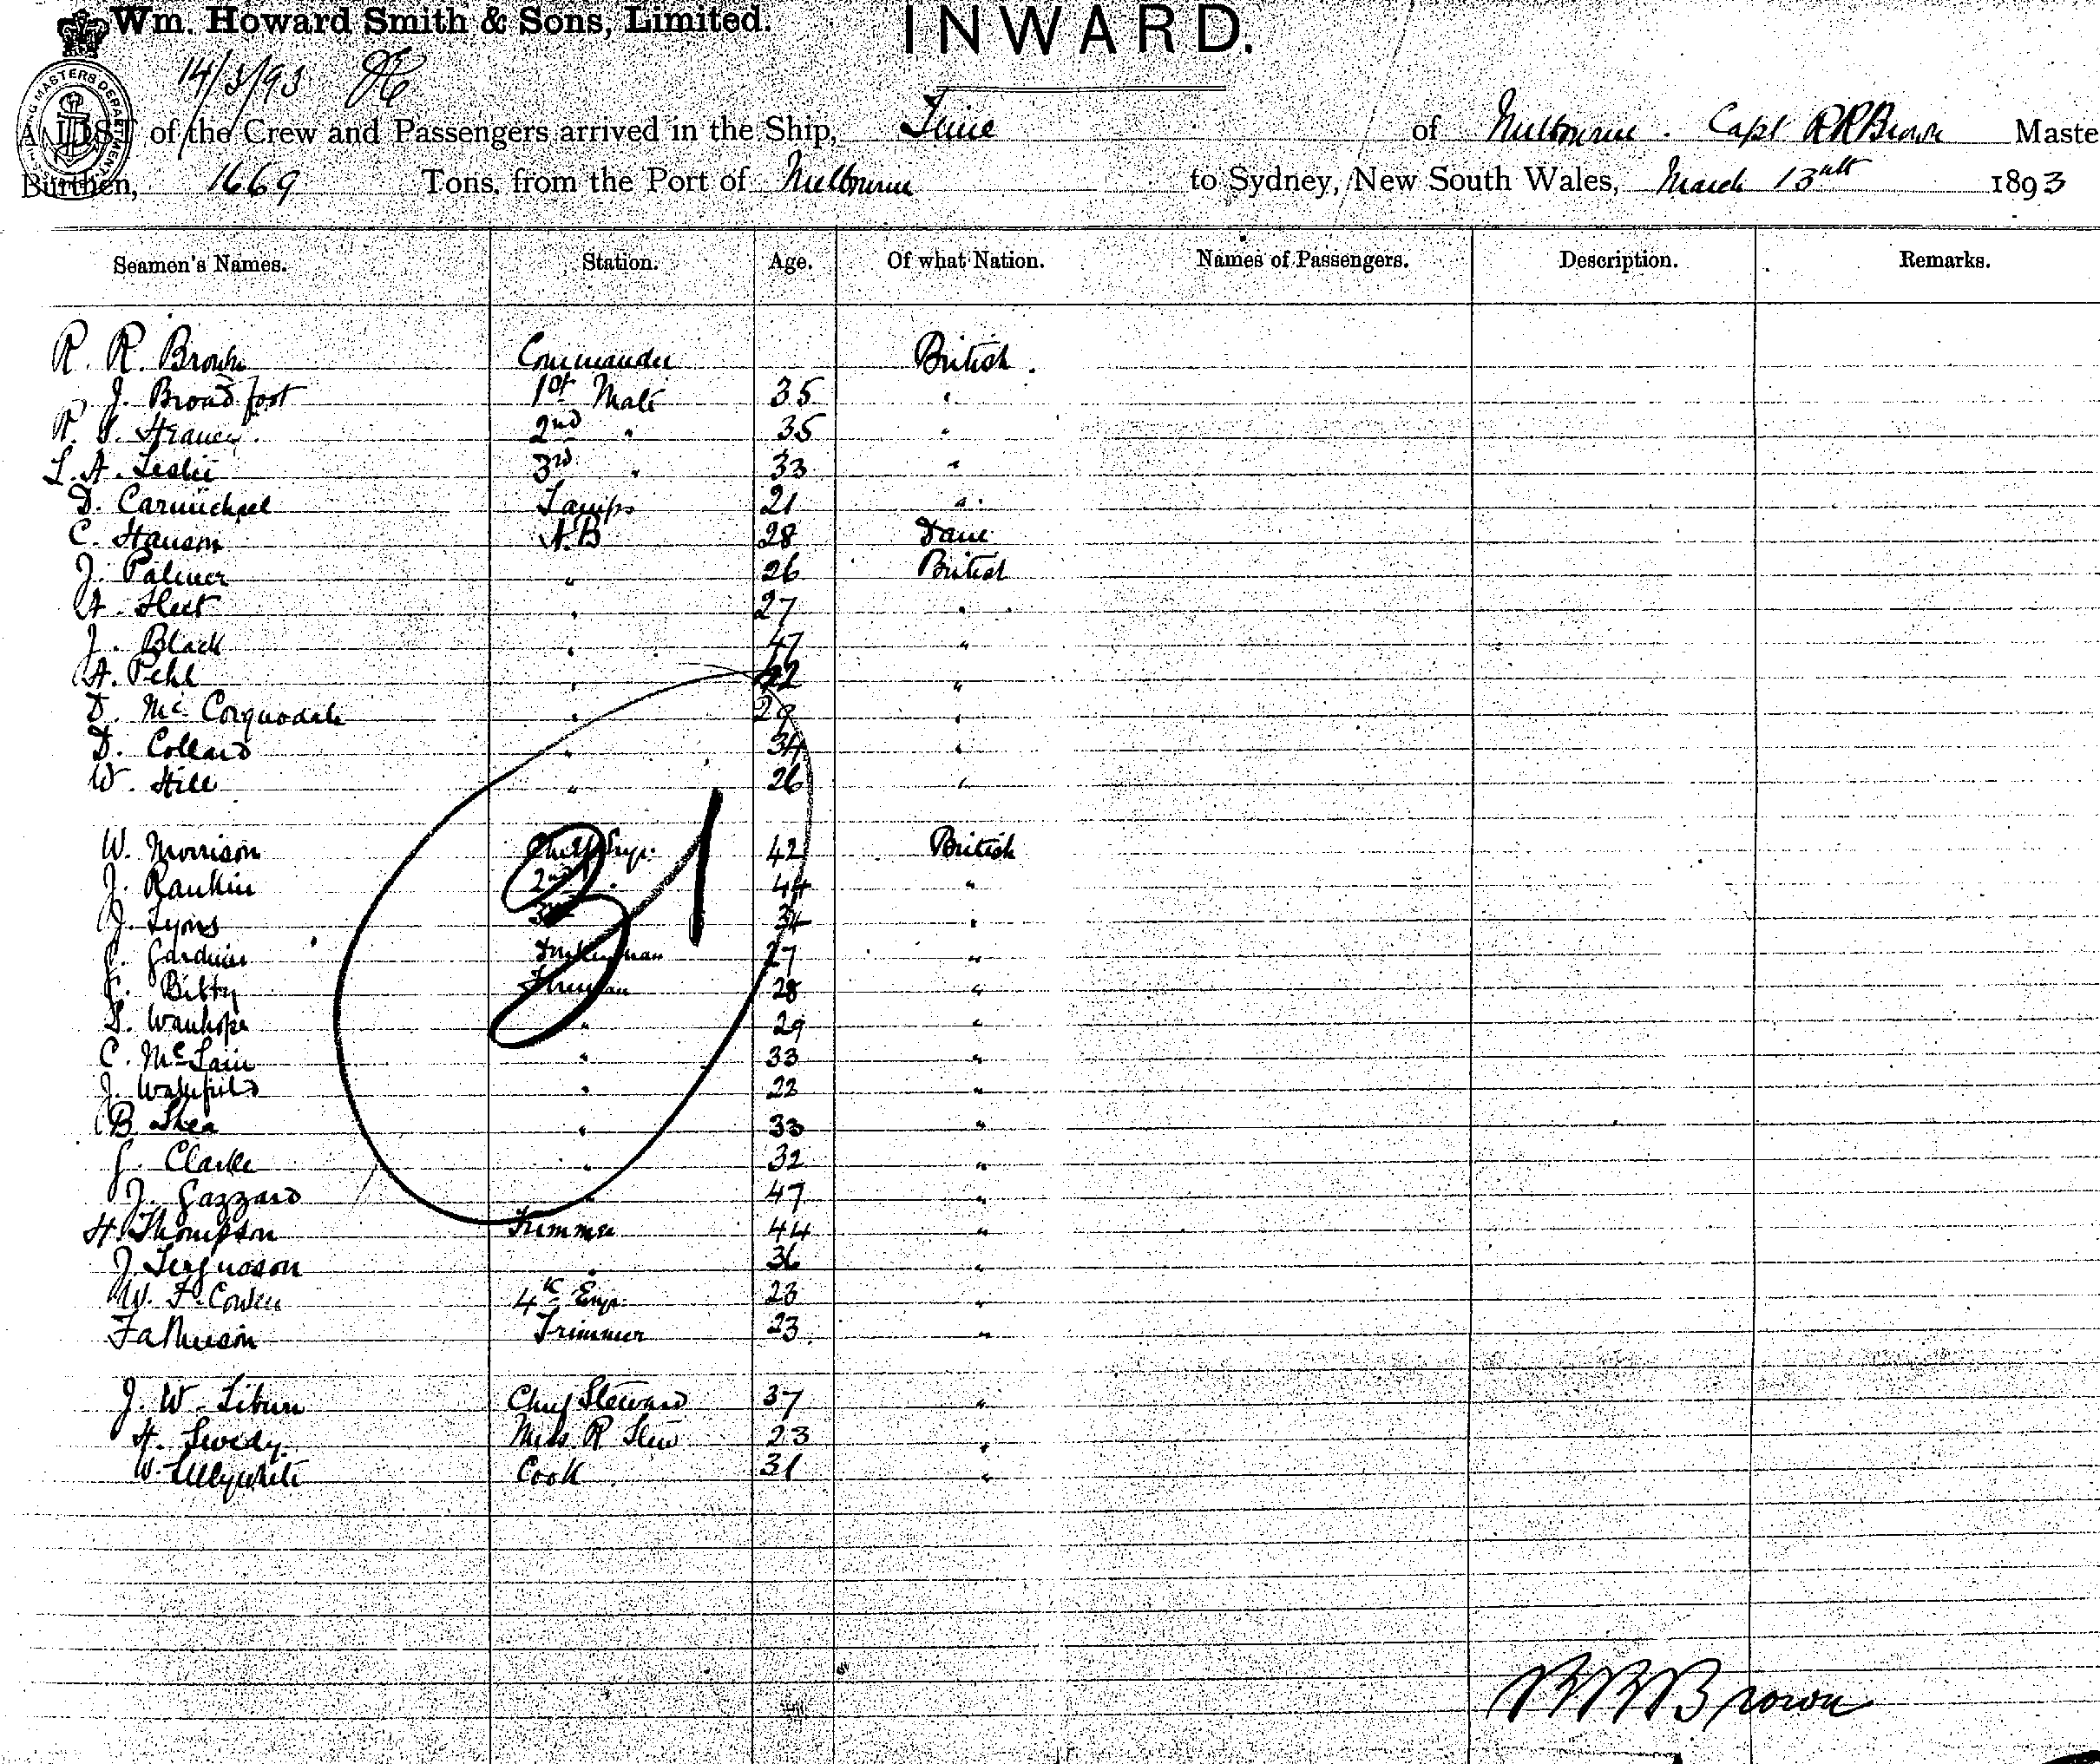 Wm. Howard Smith & Sons, Limited.
INWARD.
14/3/93
SHIPPING MASTERS' DEPARTMENT
A LIST of the Crew and Passengers arrived in the Ship, of Melbourne. Capt R R Brown Maste
Burthen, 1669 Tons, from the Port of Melbourne to Sydney, New South Wales, March 13 1893
Seamen's Names. Station. Age. Of what Nation. Names of Passengers. Description. Remarks.
R. R. Brown Commander British.
J. Broadfoot 1st Mate 35 "
R. 2nd " 35 "
L. A. Leslie 3rd " 33 "
D. Carmichael Lamps 21 "
C. Hanson A.B 28 Dane
J. Palmer " 26 British
A. Fleet " 27 "
J. Black " 47 "
A. Pehl " 22 "
D. McCorquodale " 29 "
D. Collard " 34 "
W. Hill " 26 "
W. Morrison Chief Engr. 42 British
J. Rankin 2nd " 44 "
J. Lyons 3rd 34 "
Gardner 27 "
Bitty Fireman 28 "
S. Wanhope " 29 "
C. McLain " 33 "
J. Wakefield " 22 "
B. Shea " 33 "
J. Clarke " 32 "
J. Gazzard " 47 "
H. Thompson Trimmer 44 "
J. Ferguson " 36 "
W. F. Cowen 4th Engr. 23 "
Trimmer 23 "
J. W. Chief Steward 37 "
H. Swedy Mess R Stew 23 "
W. Lillywhite Cook 31 "
31
RRBrown